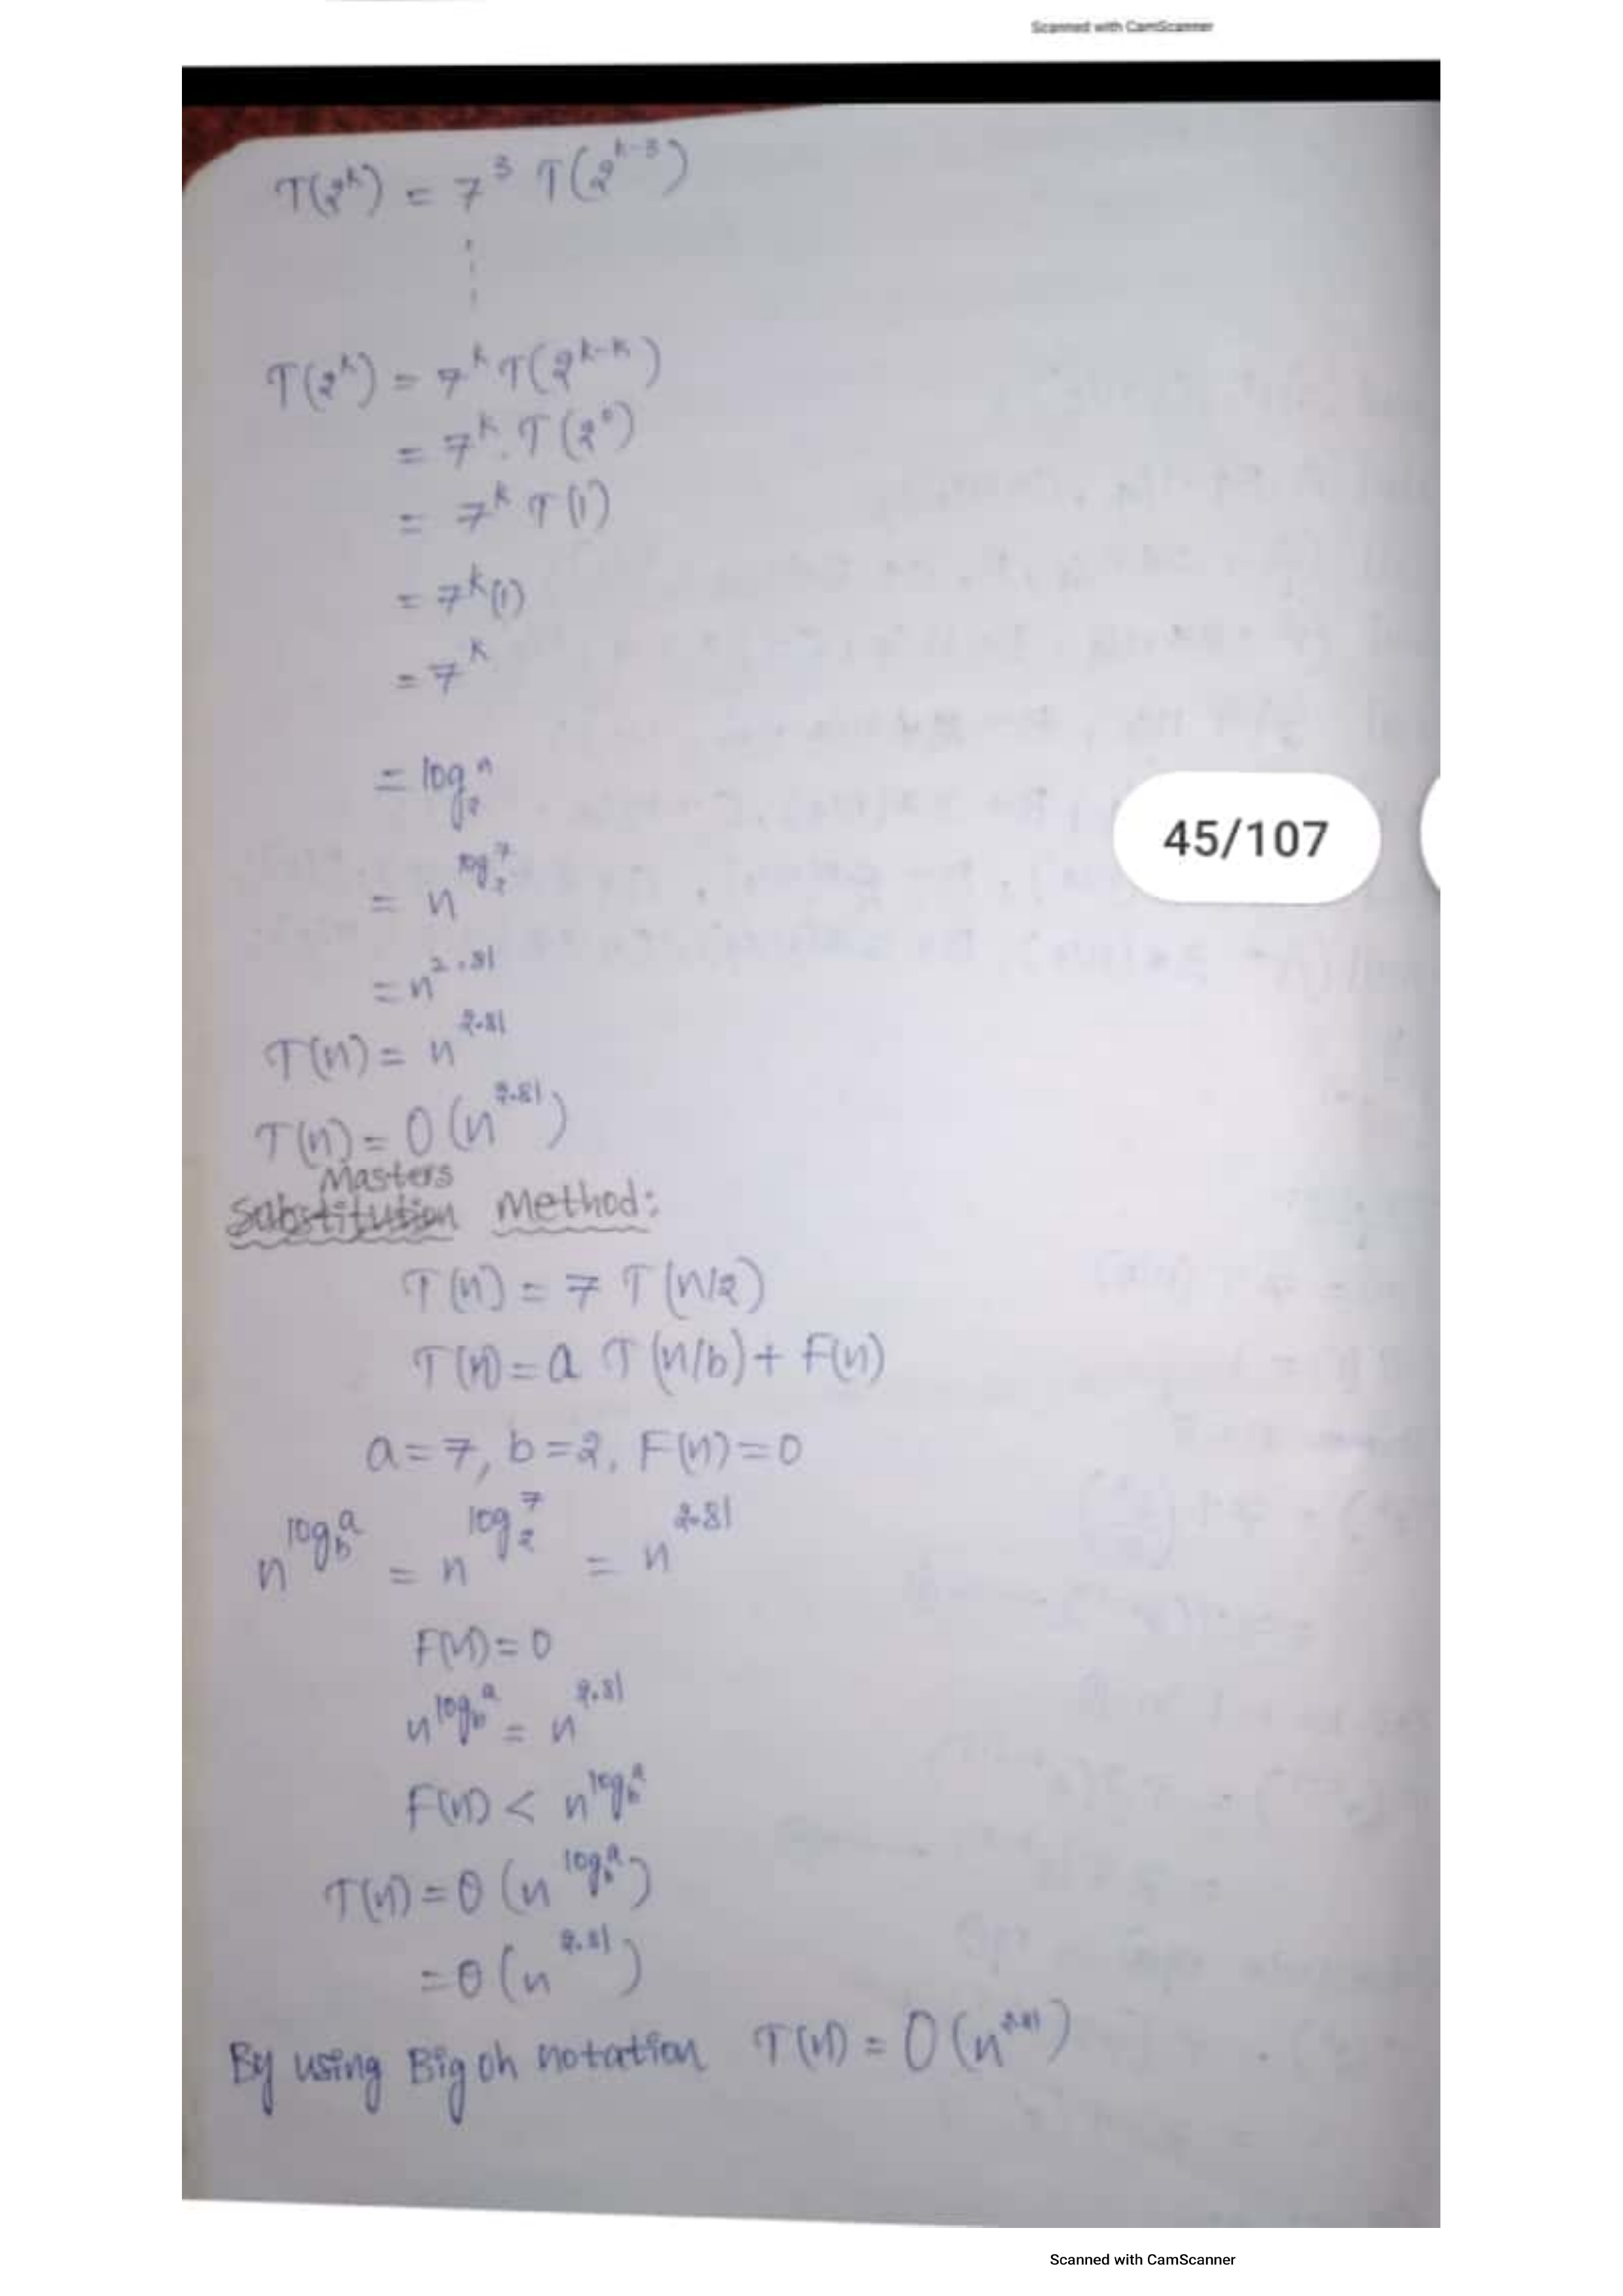 Scanned with CamScanner
T(2^k) = 7^3 T(2^{k-3})
T(2^k) = 7^k T(2^{k-k})
= 7^k . T(2^0)
= 7^k T(1)
= 7^k (1)
= 7^k
= log_2^n
45/107
= n^{log_2^7}
= n^{2.81}
T(n) = n^{2.81}
T(n) = O(n^{2.81})
Masters
Substitution Method:
T(n) = 7 T(n/2)
T(n) = a T(n/b) + F(n)
a = 7, b = 2, F(n) = 0
n^{log_b^a} = n^{log_2^7} = n^{2.81}
F(n) = 0
n^{log_b^a} = n^{2.81}
F(n) < n^{log_b^a}
T(n) = θ(n^{log_b^a})
= θ(n^{2.81})
By using Big oh notation T(n) = O(n^{2.81})
Scanned with CamScanner